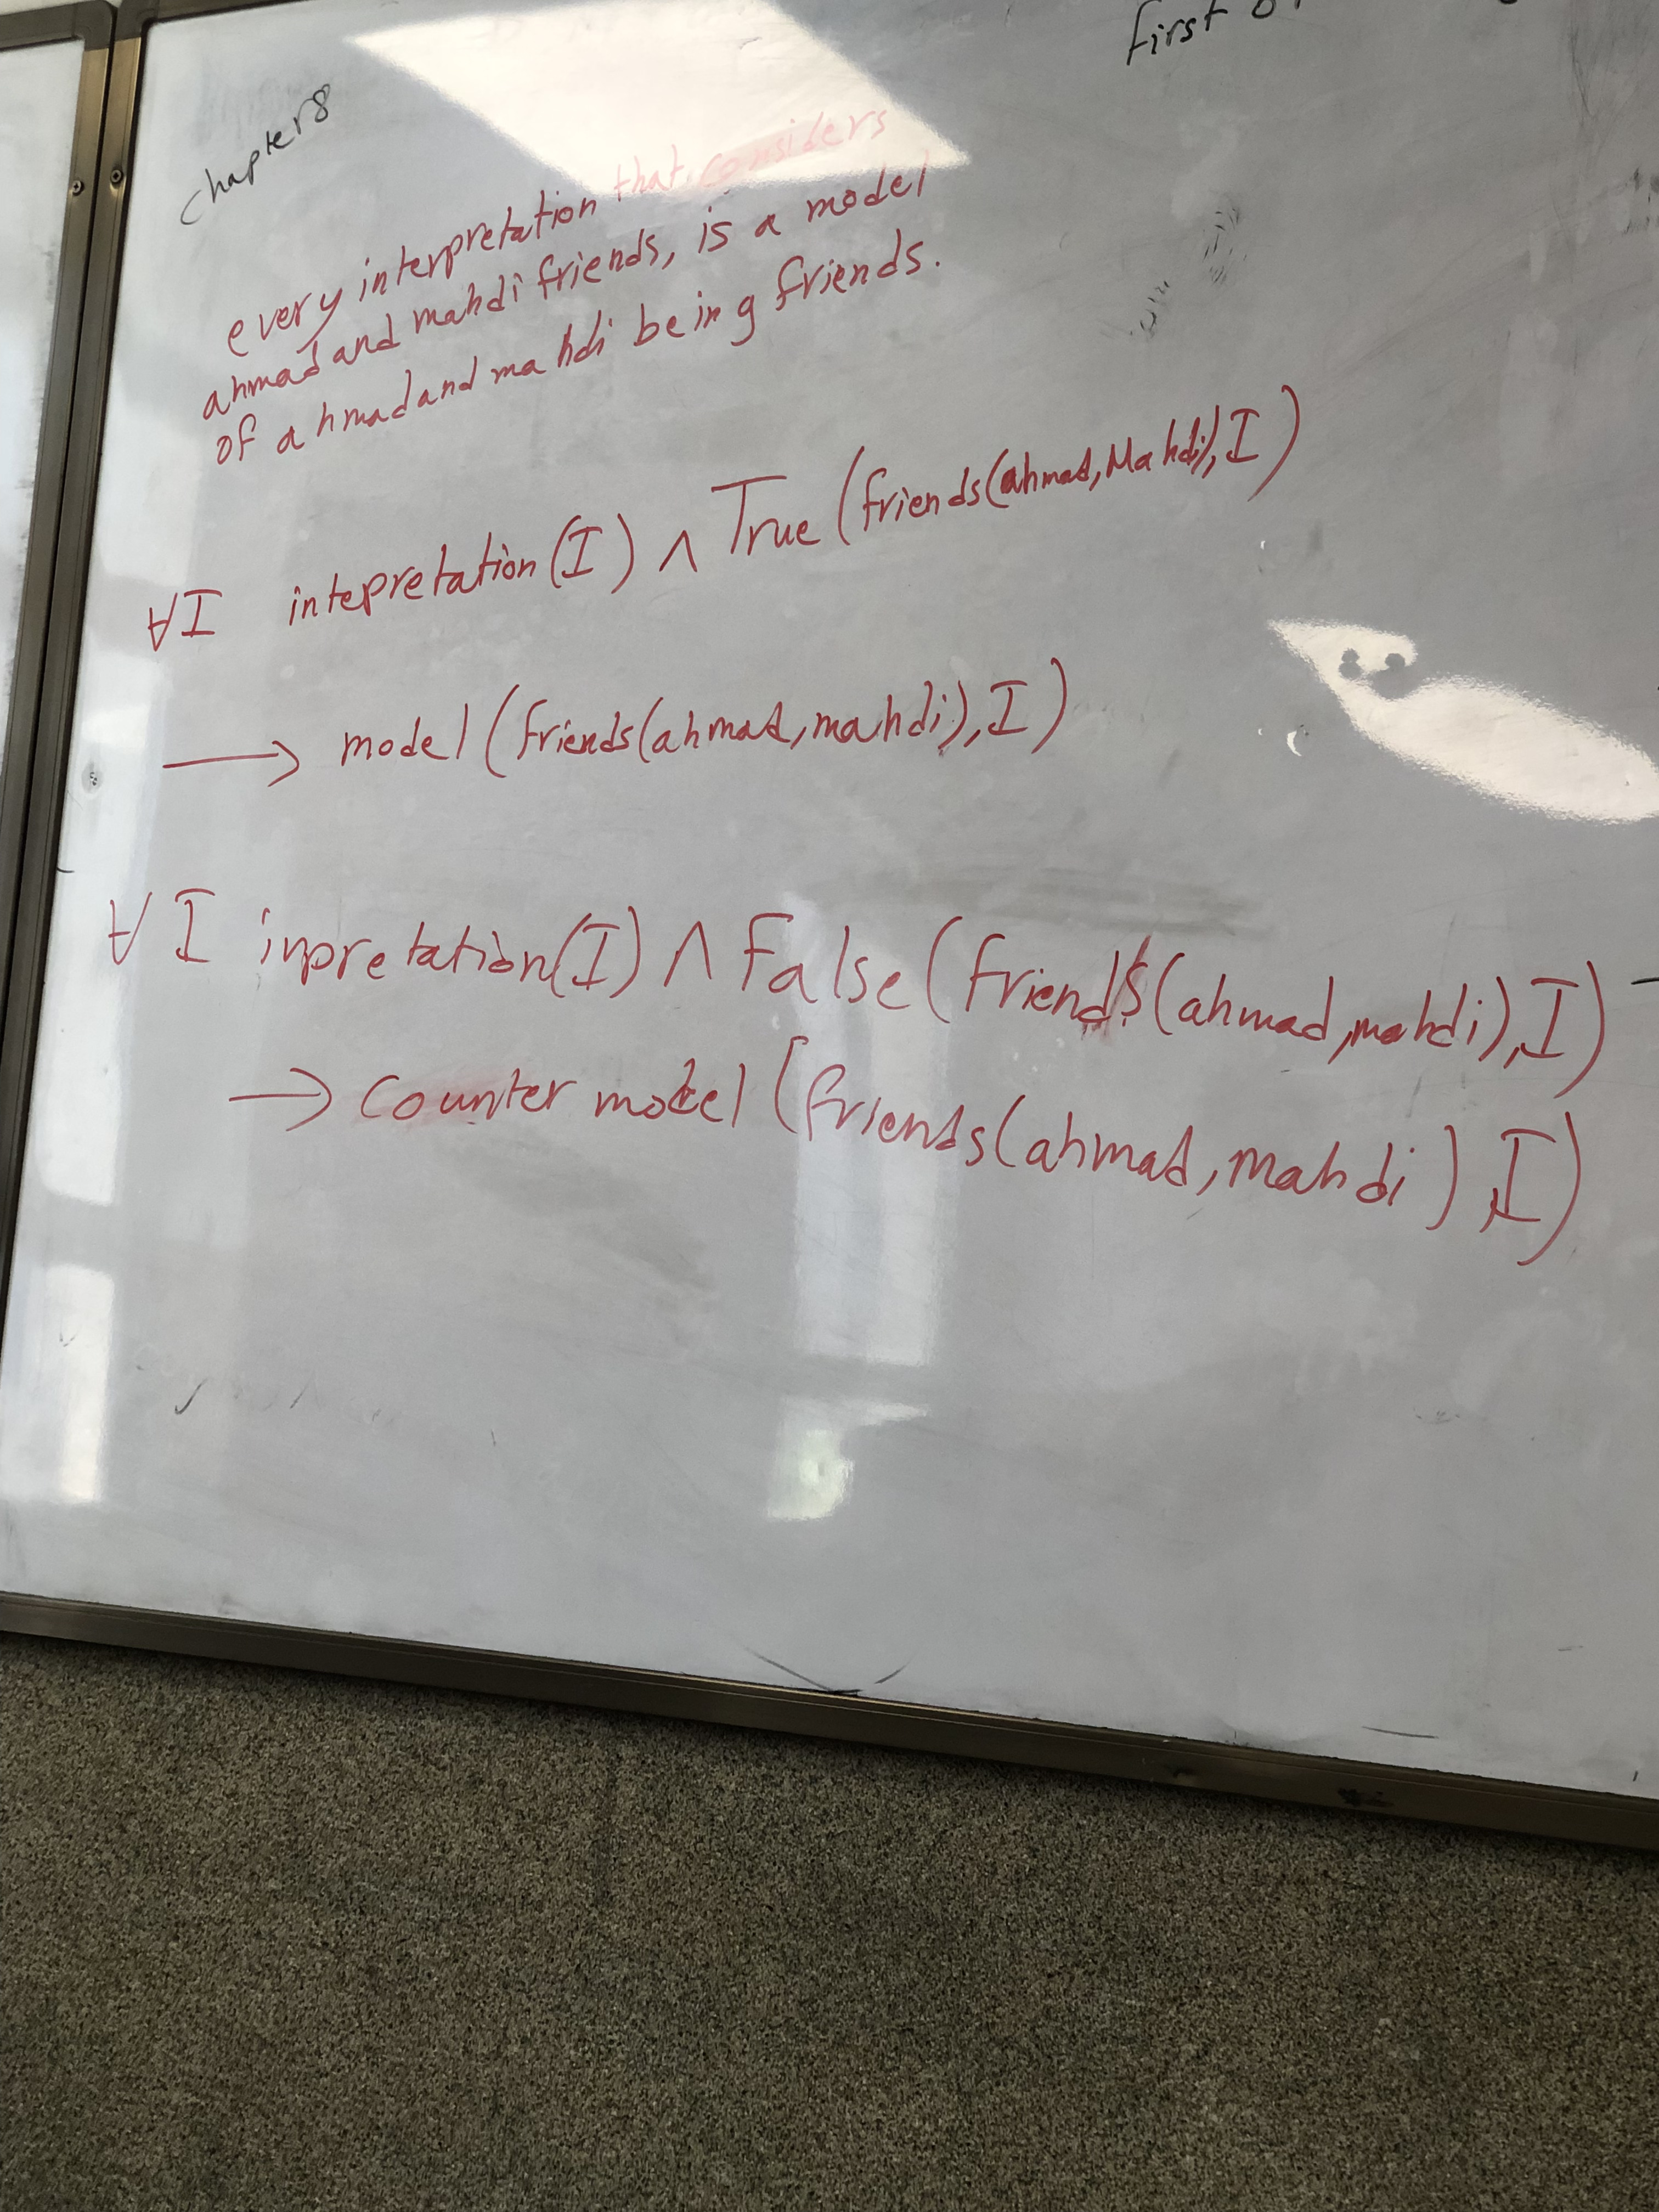 First
chapter8
every interpretation that considers
ahmad and mahdi friends, is a model
of ahmad and mahdi being friends.
∀I intepretation(I) ∧ True(friends(ahmad,Mahdi),I)
→ model(friends(ahmad,mahdi),I)
∀I inpretation(I) ∧ False(friends(ahmad,mahdi),I)
→ counter model(friends(ahmad,mahdi),I)